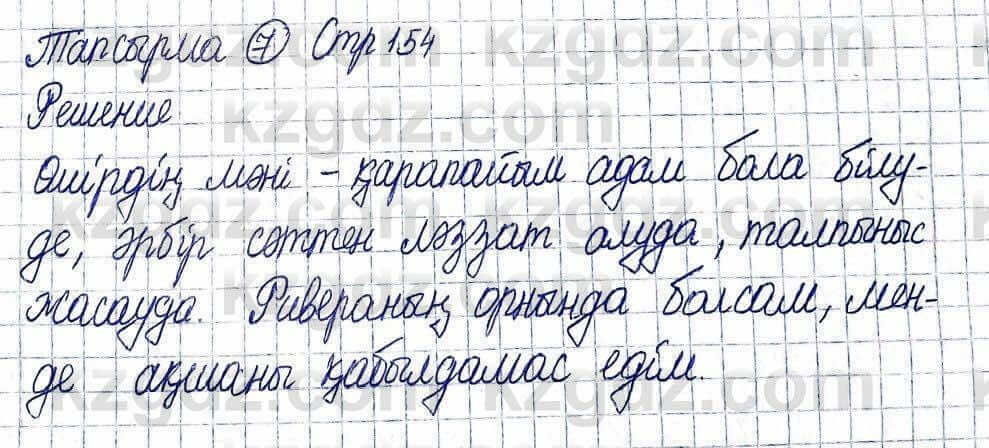 Тапсырма 7 Стр 154
Решение
Өмірдің мәні – қарапайым адам бола білу-
де, әрбір сәттен ләззат алуда, талпыныс
жасауда. Ривераның орнында болсам, мен-
де ақшаны қабылдамас едім.
kzgdz.com